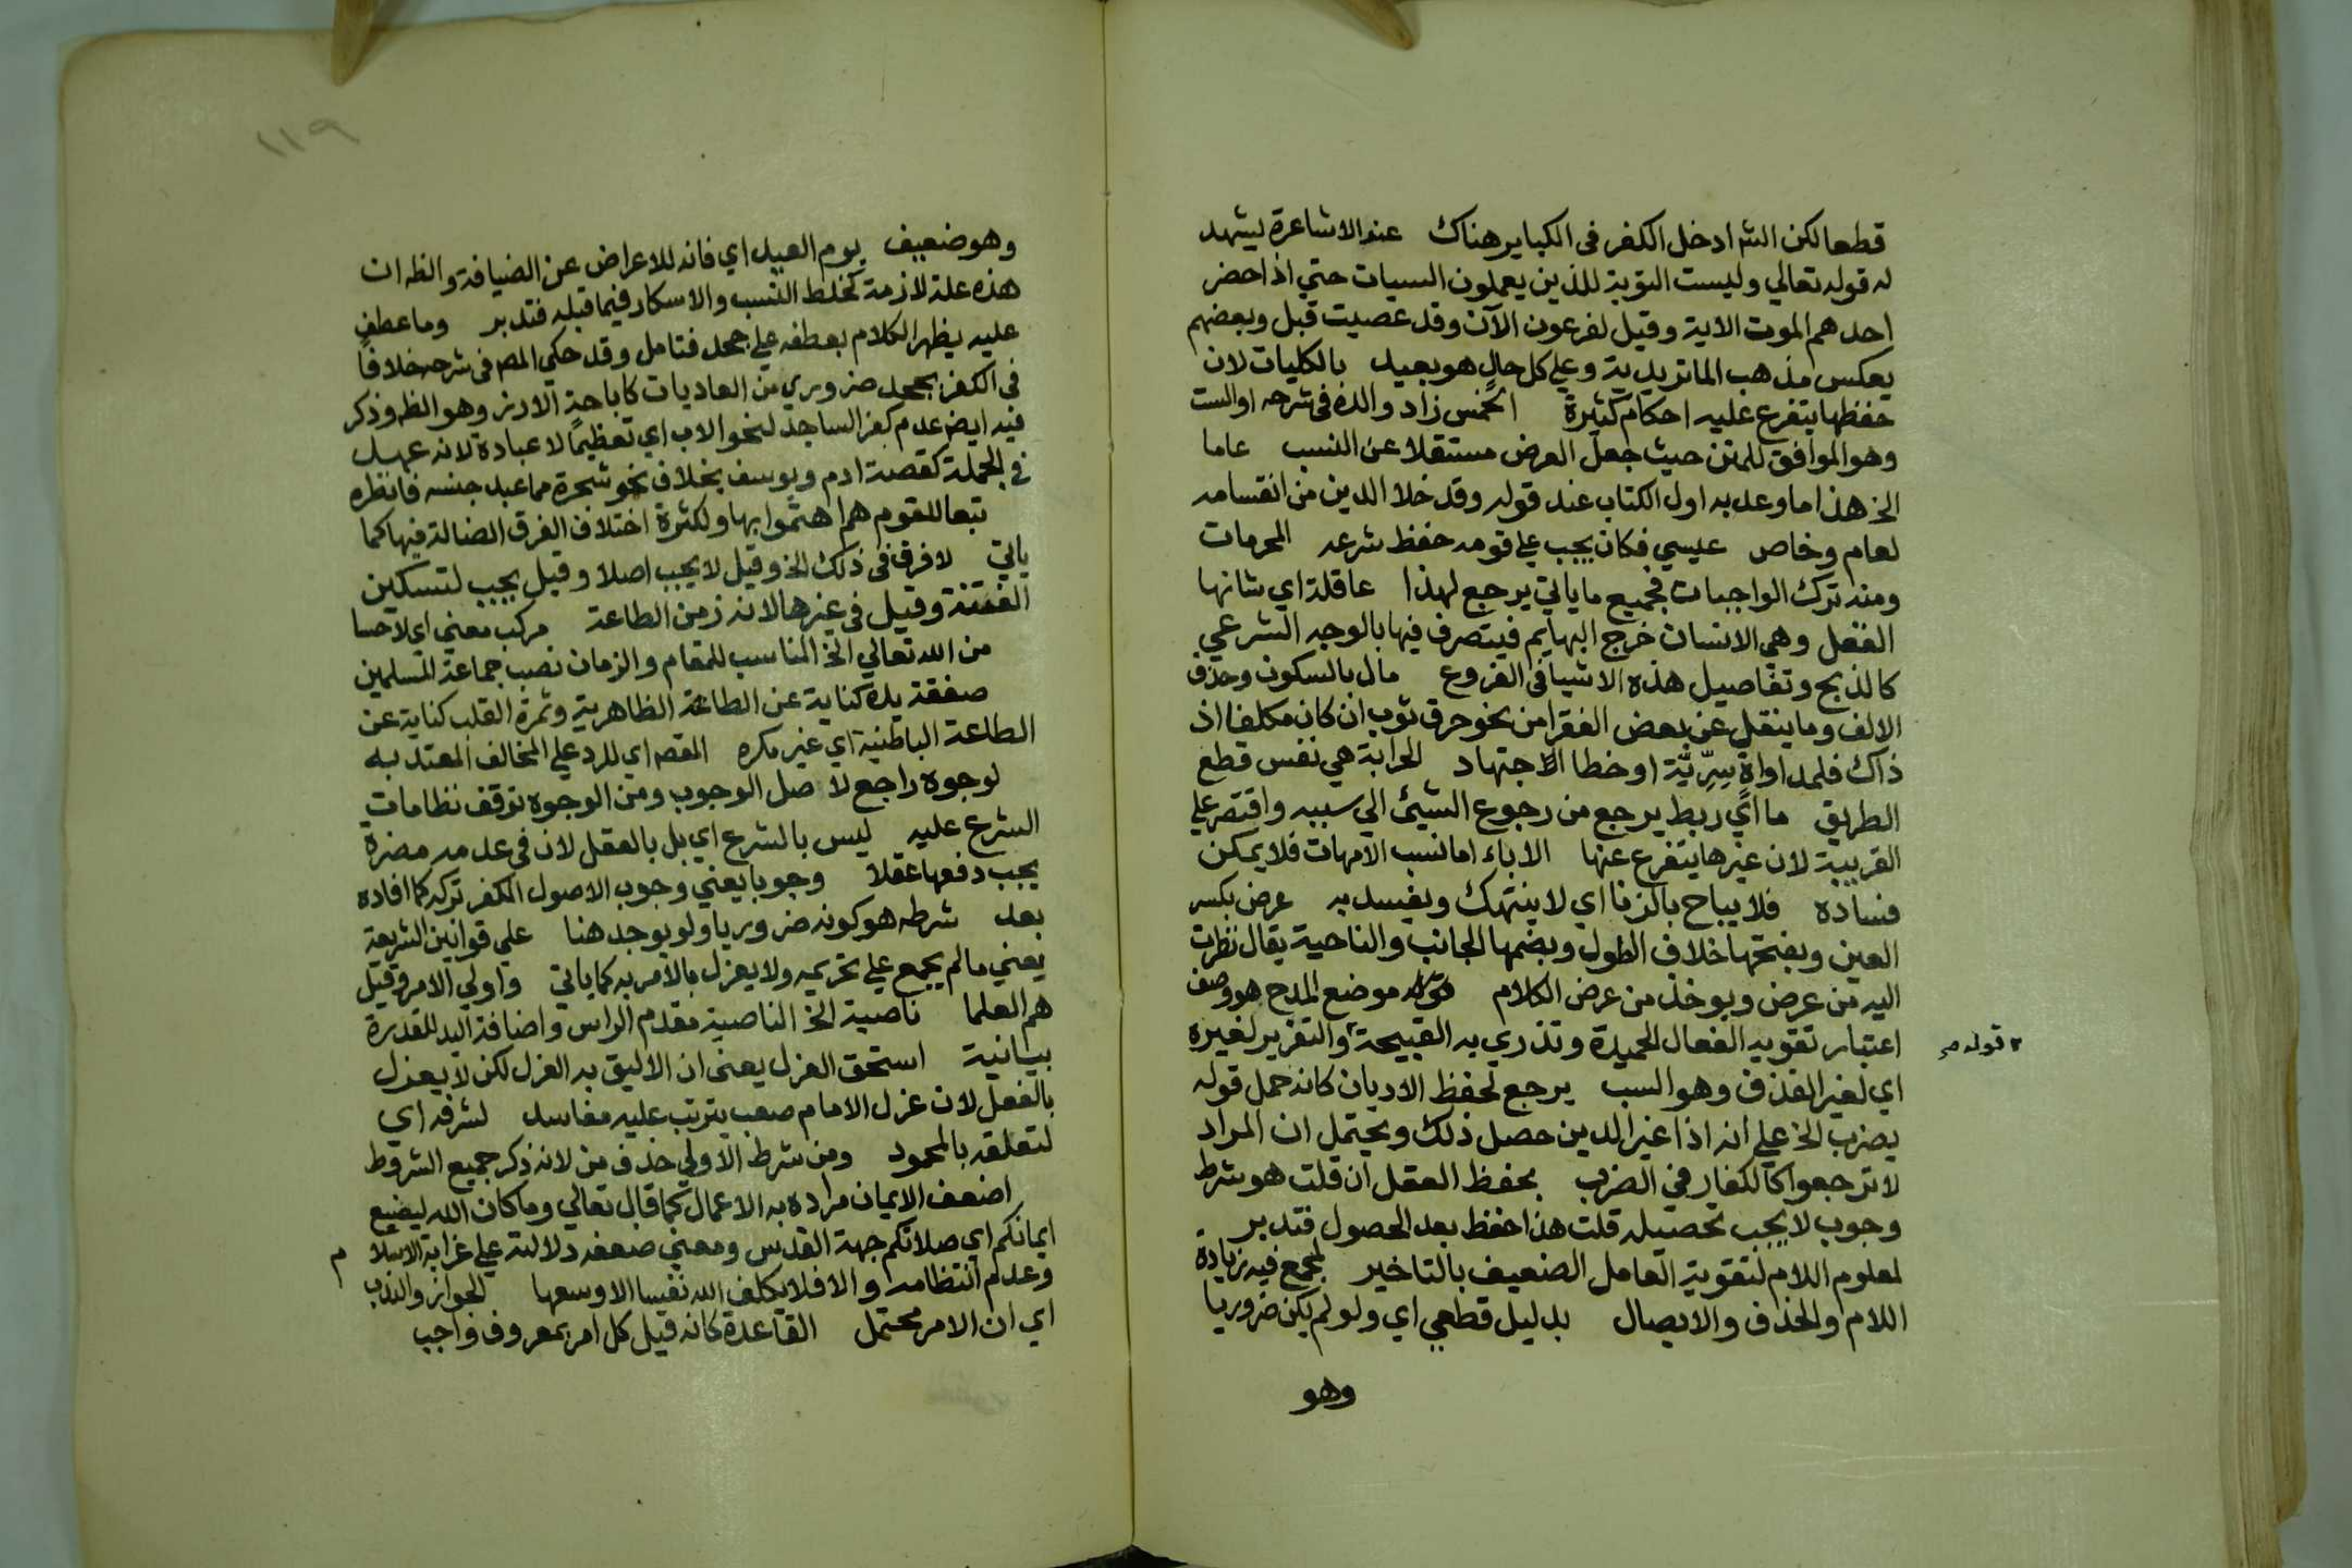 قطعا لكن الشه ادخل الكفر فى الكباير هناك عند الاشاعرة يشهد
له قوله تعالي وليست التوبة للذين يعملون السيات حتي اذا حضر
احدهم الموت الاية وقيل لفرعون الآن وقد عصيت قبل وبعضهم
يعكس مذهب الماتريدية وعلي كل حالٍ هو بعيد بالكليات لان
حفظها يتفرع عليه احكام كثيرة الخمس زاد والده فى شرحه او الست
وهو الموافق للمتن حيث جعل العرض مستقلا عن النسب عاما
الخ هذا ما وعد به اول الكتاب عند قوله وقد خلا الدين من انقسامه
لعام وخاص عيسي فكان يجب علي قومه حفظ شرعه المحرمات
ومنه ترك الواجبات فجميع ما ياتي يرجع لهذا عاقلة اي شانها
العقل وهي الانسان خرج البهايم فيتصرف فيها بالوجه الشرعي
كالذبح وتفاصيل هذه الاشيا فى الفروع مال بالسكون وحذف
الالف وما ينقل عن بعض الفقرا من نحو حرق ثوب ان كان مكلفا اذ
ذاك فلمداواةٍ سِرِّيَّة او خطا الاجتهاد الحرابة هي نفس قطع
الطريق ما ايّ ربط يرجع من رجوع الشيئ الي سببه واقتصر علي
القريبة لان غيرها يتفرع عنها الاباء اما نسب الامهات فلا يمكن
فساده فلا يباح بالزنا اي لا ينتهك ويفسد به عرض بكسر
العين وبفتحها خلاف الطول وبضمها الجانب والناحية يقال نظرت
اليه من عرض ويوخذ من عرض الكلام موضع المدح هو وصف
اعتبار تقويه الفعال الحميدة وتذري به القبيحة والتعزير لغيره
٢ قوله صح
اي لغير القذف وهو السب يرجع لحفظ الاديان كانه حمل قوله
يضرب الخ علي انه اذا غير الدين حصل ذلك ويحتمل ان المراد
لا ترجعوا كالكفار في الضرب بحفظ العقل ان قلت هو شرط
وجوب لا يجب تحصيله قلت هذا حفظ بعد الحصول فتدبر
لمعلوم اللام لتقوية العامل الضعيف بالتاخير لمجمع فيه زيادة
اللام والحذف والايصال بدليل قطعي اي ولو لم يكن ضروريا
وهو
١١٩
وهو ضعيف يوم العيد اي فانه للاعراض عن الضيافة والظه ان
هذه علة لازمة كخلط النسب والاسكار فيما قبله فتدبر وما عطف
عليه يظهر الكلام بعطفه علي جحد فتامل وقد حكي المص فى شرحه خلافًا
فى الكفر بجحد ضروري من العاديات كاباحة الارز وهو الظه وذكر
فيه ايض عدم كفر الساجد لنحو الاب اي تعظيمًا لا عبادة لانه عهد
في الجملة كقصة ادم ويوسف بخلاف نحو شجرة مما عبد جنسه فانظره
تبعا للقوم هم اهتموا بها ولكثرة اختلاف الفرق الضالة فيها كما
ياتي لا فرق فى ذلك الخ وقيل لا يجب اصلا وقيل يجب لتسكين
الفتنة وقيل فى غيرها لانه زمن الطاعة مركب معني اي لا حسا
من الله تعالي الخ المناسب للمقام والزمان نصب جماعة المسلمين
صفقة يده كناية عن الطاعة الظاهرية وثمرة القلب كناية عن
الطاعة الباطنية اي غير مكره القصه اي للرد علي المخالف المعتد به
لوجوه راجع لاصل الوجوب ومن الوجوه توقف نظامات
الشرع عليه ليس بالشرع اي بل بالعقل لان في عدمه مضرة
يجب دفعها عقلا وجوبا يعني وجوب الاصول المكفر تركه كما افاده
بعد شرطه هو كونه ضروريا ولو يوجد هنا علي قوانين الشريعة
يعني ما لم يجمع علي تحريمه ولا يعزل بالامر به كما ياتي واولي الامر وقيل
هم العلما ناصية الخ الناصية مقدم الراس واضافة اليد للقدرة
بيانية استحق العزل يعنى ان الاليق به العزل لكن لا يعزل
بالفعل لان عزل الامام صعب يترتب عليه مفاسد لشرفه اي
لتعلقه بالمحمود ومن شرط الاولي حذف من لانه ذكر جميع الشروط
اضعف الايمان مراده به الاعمال كما قال تعالي وما كان الله ليضيع
ايمانكم اي صلاتكم جهة القدس ومعني ضعفه دلالته علي غرابة الاسلام
وعدم انتظامه والا فلا يكلف الله نفسا الا وسعها الجواز والندب
اي ان الامر محتمل القاعدة كانه قيل كل امر بمعروف واجب